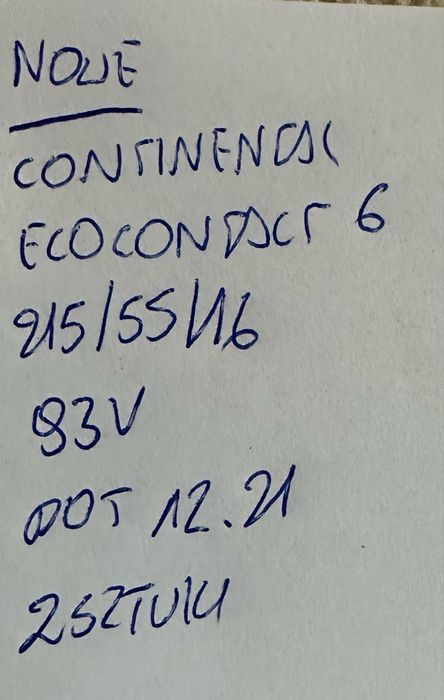 NOWE
CONTINENTAL
ECOCONTACT 6
215/55/16
93V
DOT 12.21
2 SZTUKI